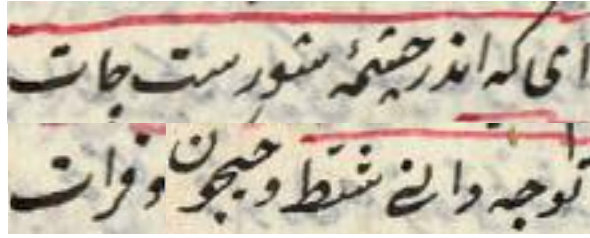 ای که اندر چشمهٔ شورست جات
تو چه دانی شط و جیحون و فرات